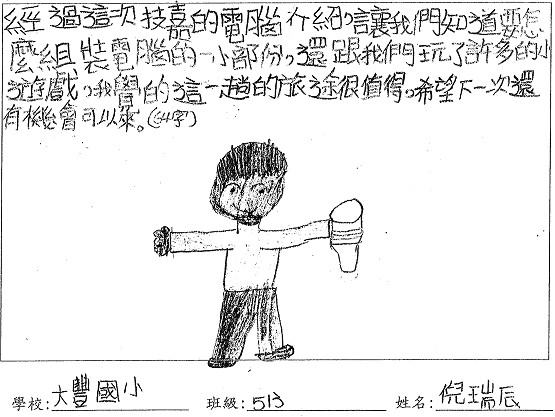 經過這次技嘉的電腦介紹,讓我們知道要怎
麼組裝電腦的一小部份,還跟我們玩了許多的小
遊戲,我覺的這一趟的旅途很值得,希望下一次還
有機會可以來。(64字)
學校:大豐國小 班級:513 姓名:倪瑞辰